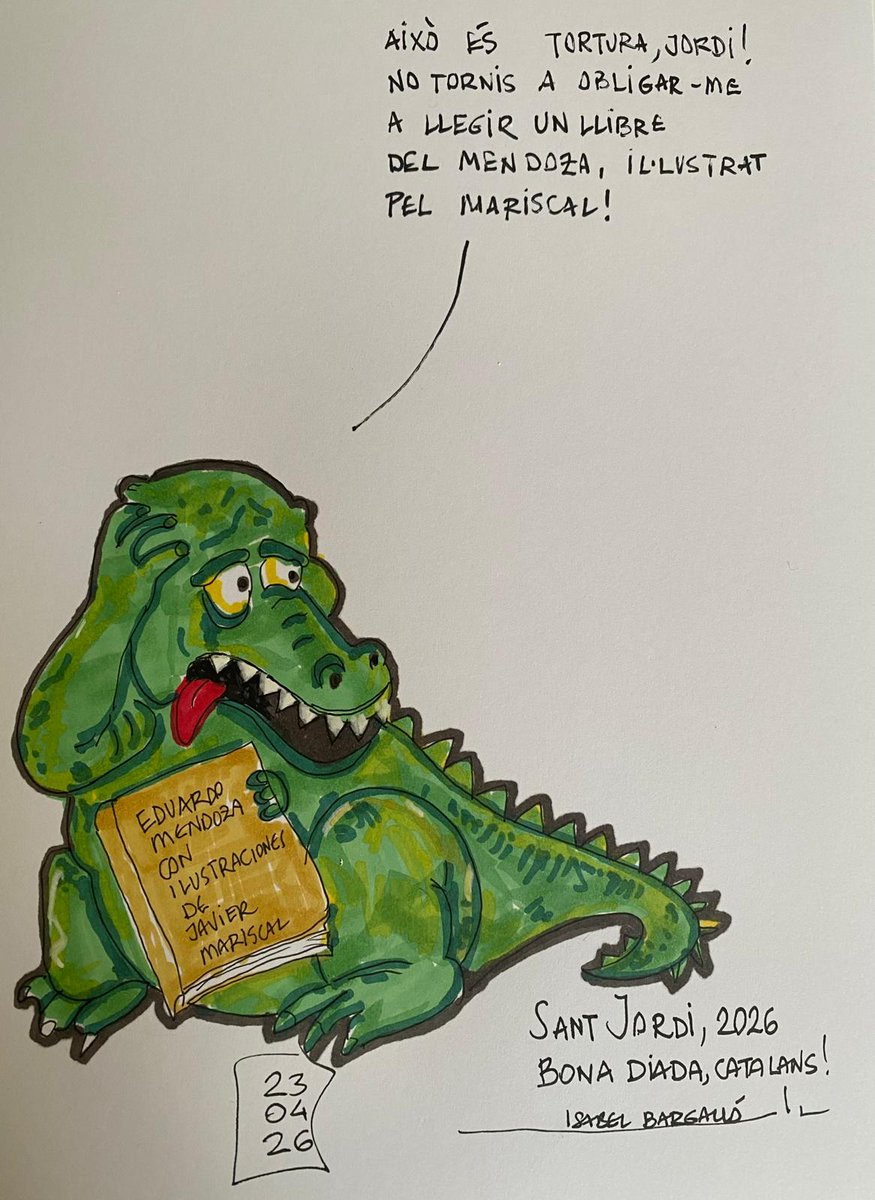 AIXÒ ÉS TORTURA, JORDI!
NO TORNIS A OBLIGAR-ME
A LLEGIR UN LLIBRE
DEL MENDOZA, IL·LUSTRAT
PEL MARISCAL!
EDUARDO
MENDOZA
CON
ILUSTRACIONES
DE
JAVIER
MARISCAL
SANT JORDI, 2026
BONA DIADA, CATALANS!
ISABEL BARGALLÓ
23
04
26